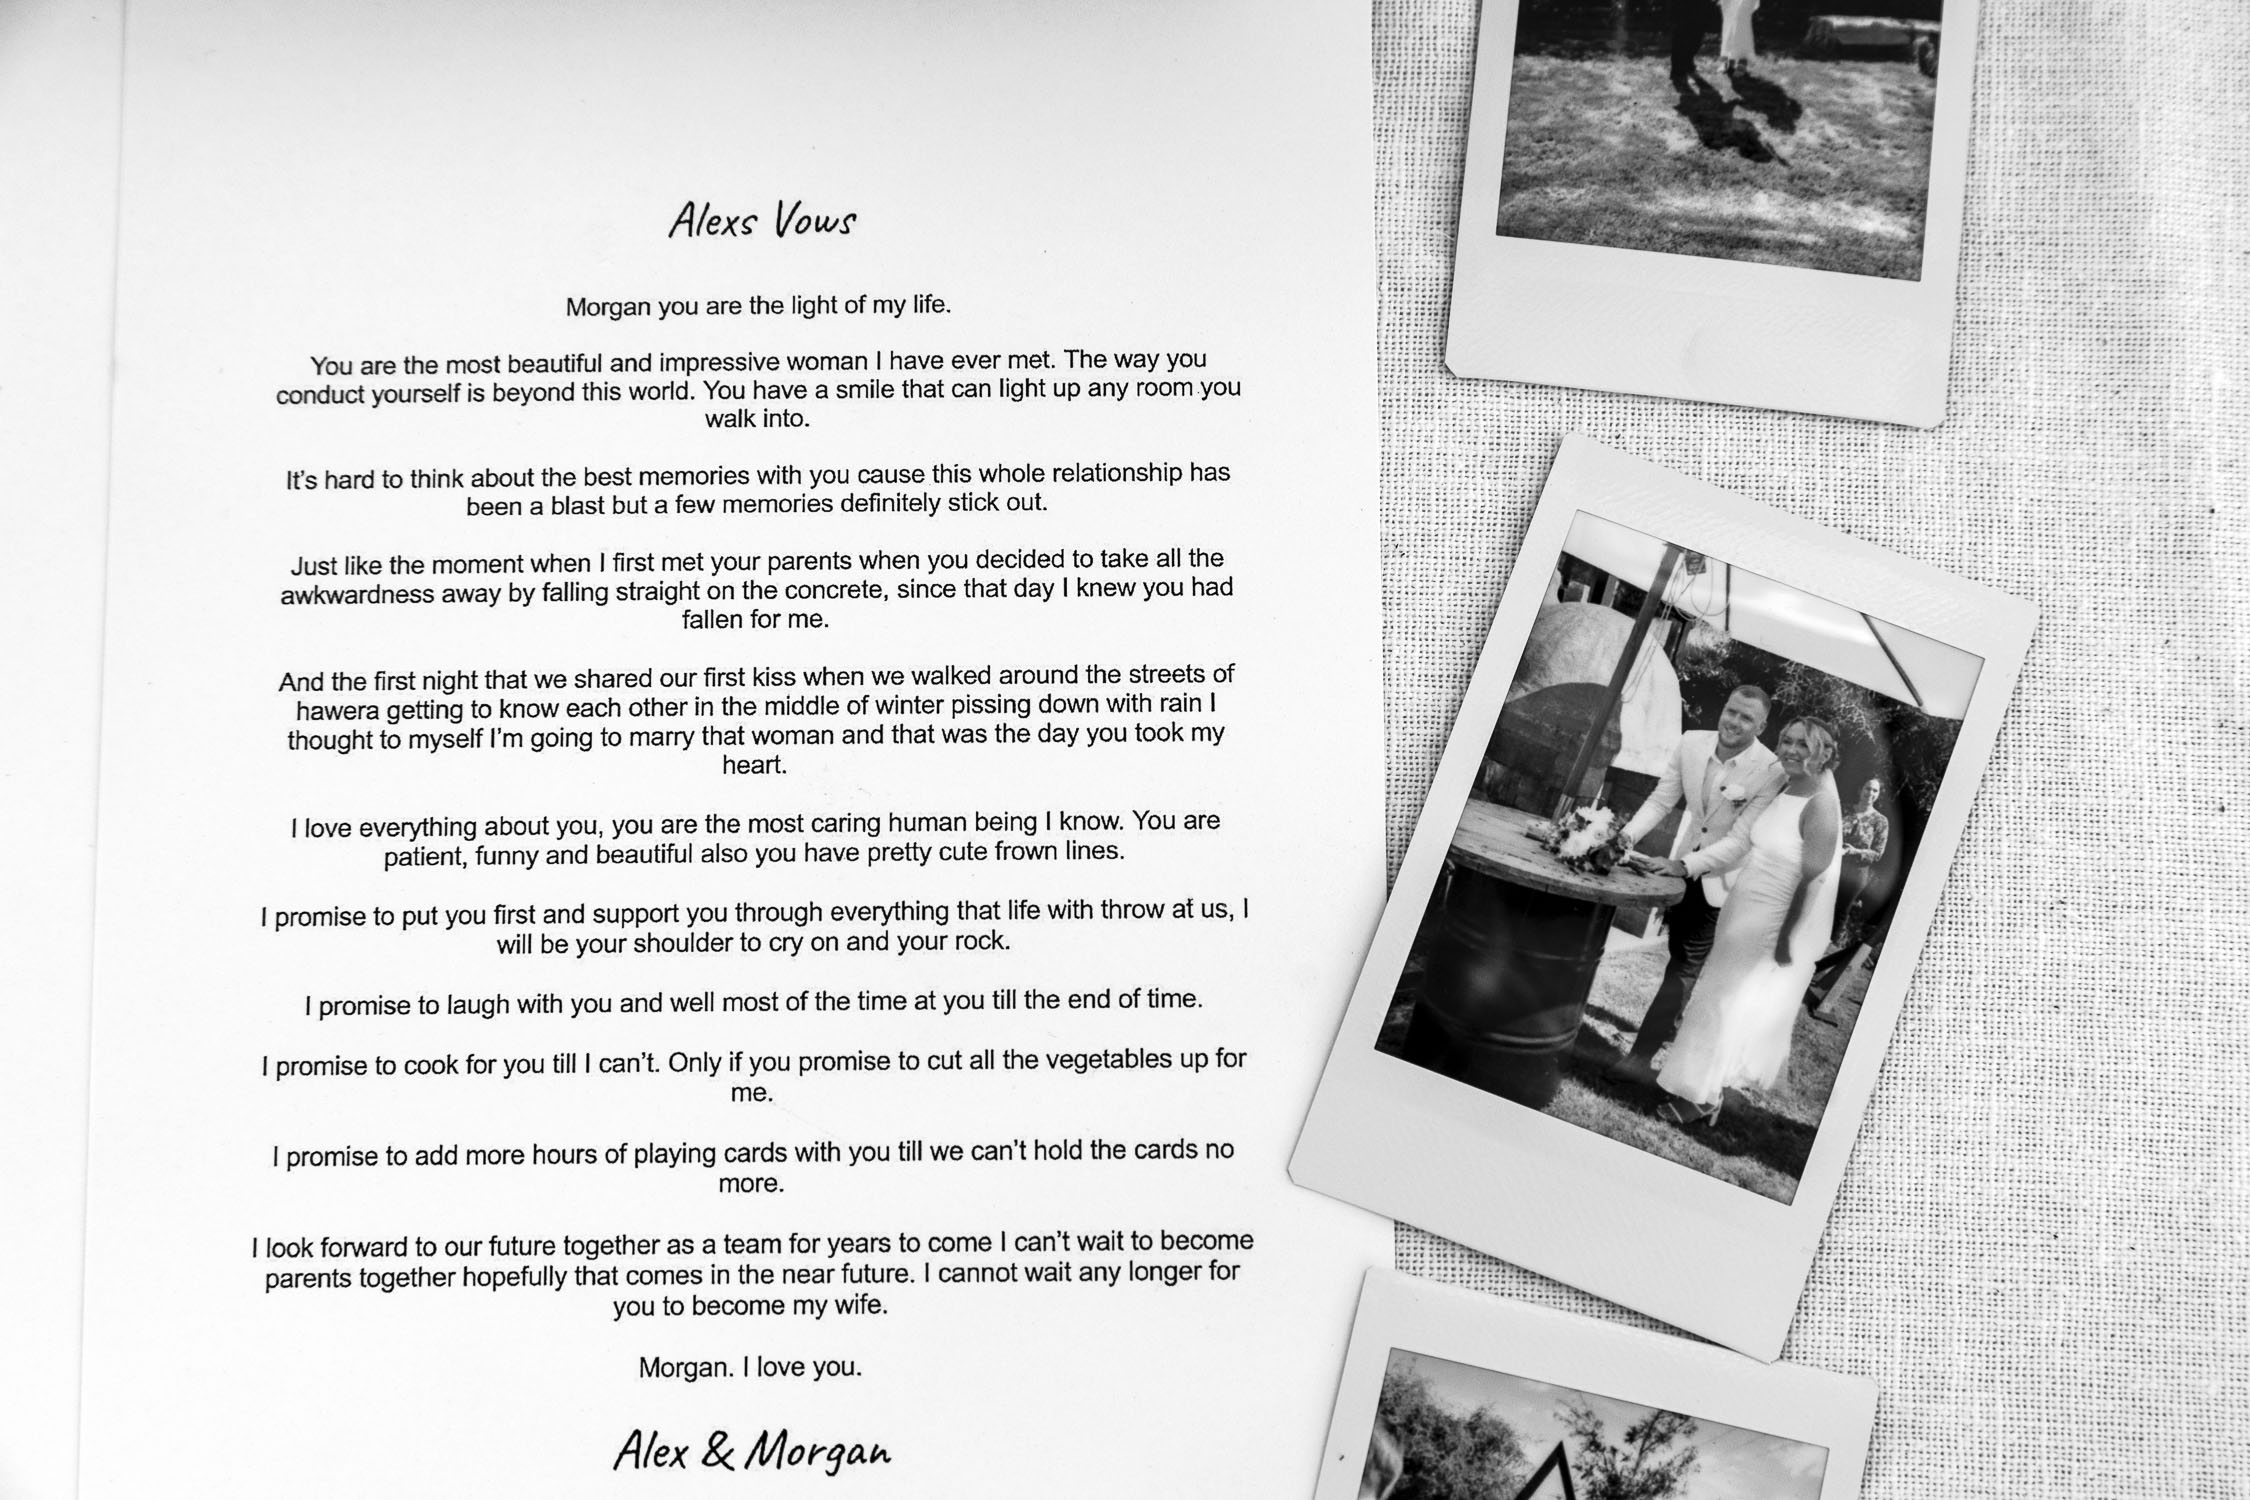 Alexs Vows
Morgan you are the light of my life.
You are the most beautiful and impressive woman I have ever met. The way you
conduct yourself is beyond this world. You have a smile that can light up any room you
walk into.
It's hard to think about the best memories with you cause this whole relationship has
been a blast but a few memories definitely stick out.
Just like the moment when I first met your parents when you decided to take all the
awkwardness away by falling straight on the concrete, since that day I knew you had
fallen for me.
And the first night that we shared our first kiss when we walked around the streets of
hawera getting to know each other in the middle of winter pissing down with rain I
thought to myself I'm going to marry that woman and that was the day you took my
heart.
I love everything about you, you are the most caring human being I know. You are
patient, funny and beautiful also you have pretty cute frown lines.
I promise to put you first and support you through everything that life with throw at us, I
will be your shoulder to cry on and your rock.
I promise to laugh with you and well most of the time at you till the end of time.
I promise to cook for you till I can't. Only if you promise to cut all the vegetables up for
me.
I promise to add more hours of playing cards with you till we can't hold the cards no
more.
I look forward to our future together as a team for years to come I can't wait to become
parents together hopefully that comes in the near future. I cannot wait any longer for
you to become my wife.
Morgan. I love you.
Alex & Morgan